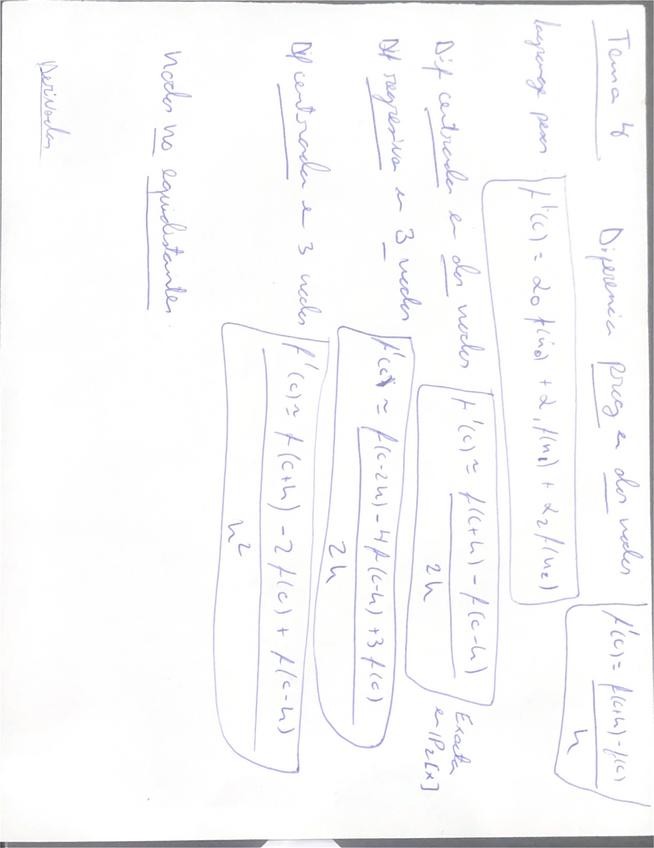 Tema 4 Diferencia prog en dos nodos f'(c) = f(c+h) - f(c) / h
lagrange pesos f'(c) = α0 f(x0) + α1 f(x1) + α2 f(x2)
Dif centrada en dos nodos f'(c) ≈ f(c+h) - f(c-h) / 2h Exacta en P2[x]
Dif regresiva en 3 nodos f'(c) ≈ f(c-2h) - 4f(c-h) + 3f(c) / 2h
Dif centrada en 3 nodos f'(c) ≈ f(c+h) - 2f(c) + f(c-h) / h²
Nodos no equidistantes
Derivadas